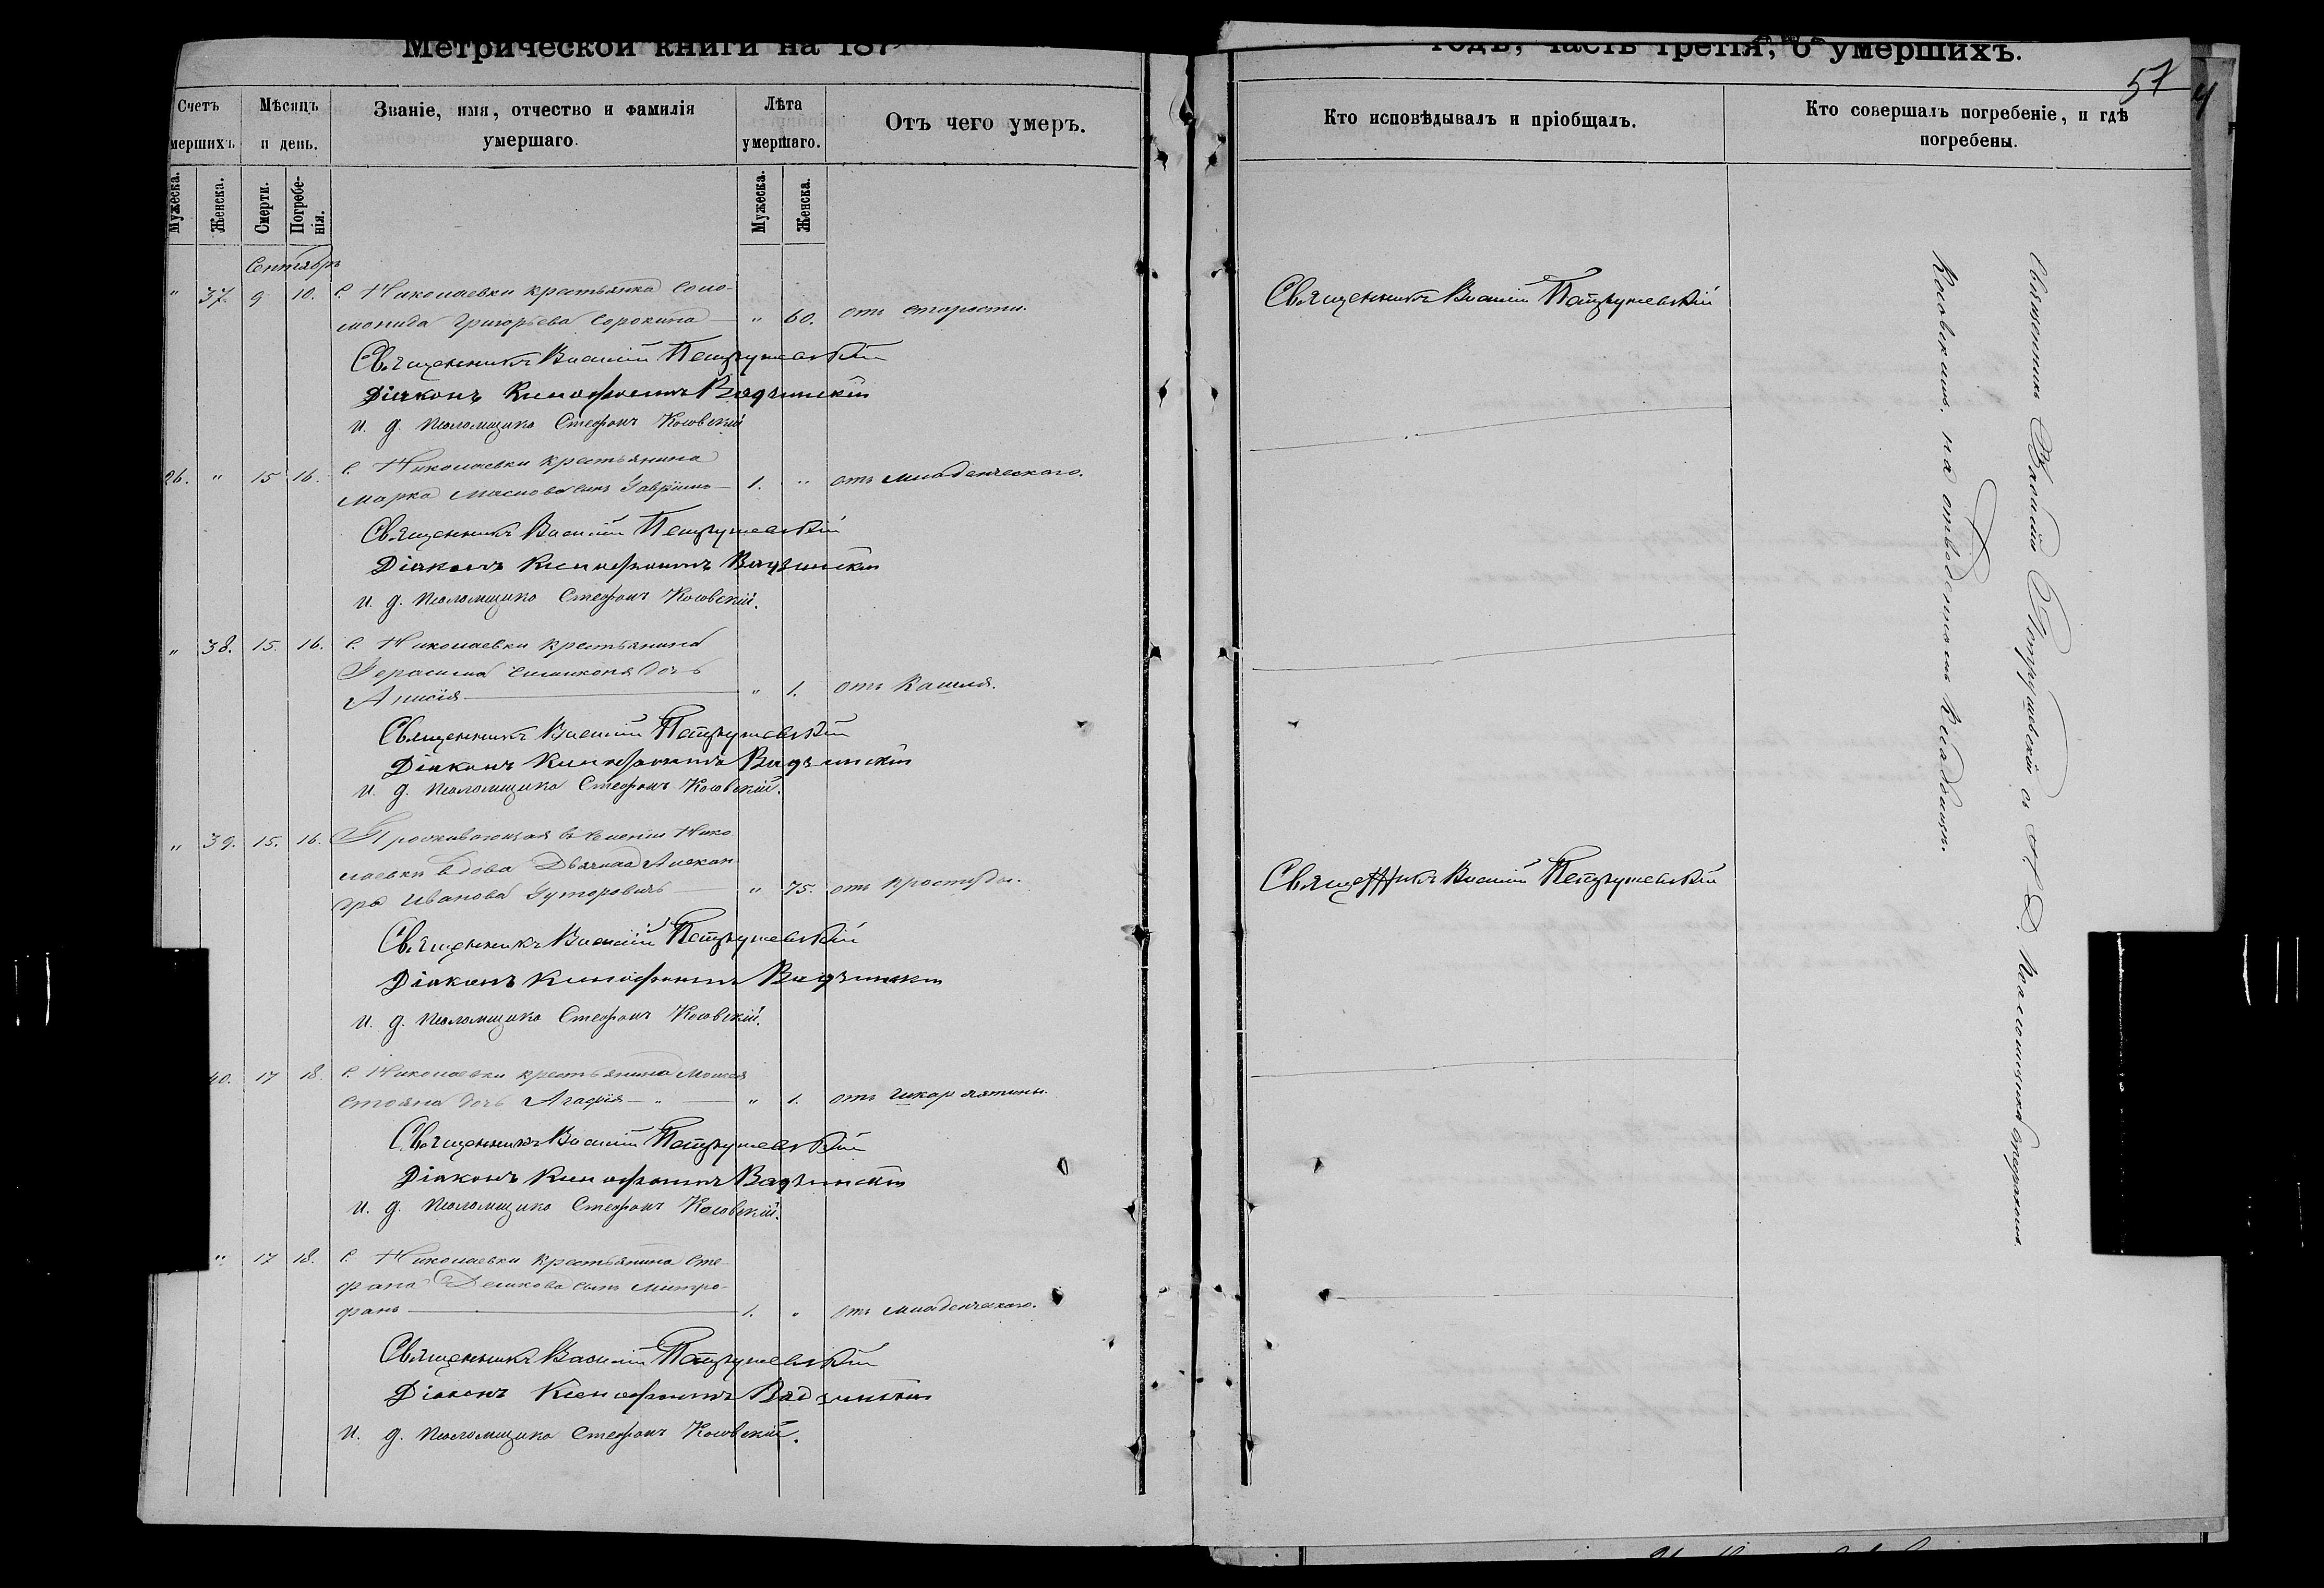 Метрической книги на 187
годъ, часть третія, о умершихъ.
57
Счетъ умершихъ
Мѣсяцъ и день.
Званіе, имя, отчество и фамилія умершаго.
Лѣта умершаго.
Отъ чего умеръ.
Кто исповѣдывалъ и пріобщалъ.
Кто совершалъ погребеніе, и гдѣ погребены.
Мужеска.
Женска.
Смерти.
Погребе-
нія.
Мужеска.
Женска.
Сентябрь
" 37. 9 10. С. Николаевки крестьянка Соло-
монида Григорьева Сорокина " 60. отъ старости.
Священникъ Василій Петрушевскій
Священникъ Василій Петрушевскій
Діаконъ Ксенофонтъ
И. д. псаломщика Стефанъ Косовскій
26. " 15 16. С. Николаевки крестьянина
Марка сынъ Гавріилъ 1. " отъ младенческаго.
Священникъ Василій Петрушевскій
Діаконъ Ксенофонтъ
И. д. псаломщика Стефанъ Косовскій.
" 38. 15. 16. С. Николаевки крестьянина
Герасима дочь
Анисія " 1. отъ кашля.
Священникъ Василій Петрушевскій
Діаконъ Ксенофонтъ
И. д. псаломщика Стефанъ Косовскій.
" 39. 15. 16. Проживающая въ селеніи Нико-
лаевки вдова Дьячка Алексан-
дра Иванова Гуторовичъ " 75. отъ простуды.
Священникъ Василій Петрушевскій
Священникъ Василій Петрушевскій
Діаконъ Ксенофонтъ
И. д. псаломщика Стефанъ Косовскій.
40. 17 18. С. Николаевки крестьянина Моисея
Стояна дочь Агафія " " 1. отъ шкарлятины.
Священникъ Василій Петрушевскій
Діаконъ Ксенофонтъ
И. д. псаломщика Стефанъ Косовскій.
" 17 18. С. Николаевки крестьянина Сте-
фана сынъ Митро-
фанъ 1. " отъ младенческаго.
Священникъ Василій Петрушевскій
Діаконъ Ксенофонтъ
И. д. псаломщика Стефанъ Косовскій.
Священникъ Василій Петрушевскій съ И. Д. Псаломщика Стефаномъ
Косовскимъ, на отведенномъ кладбищѣ.